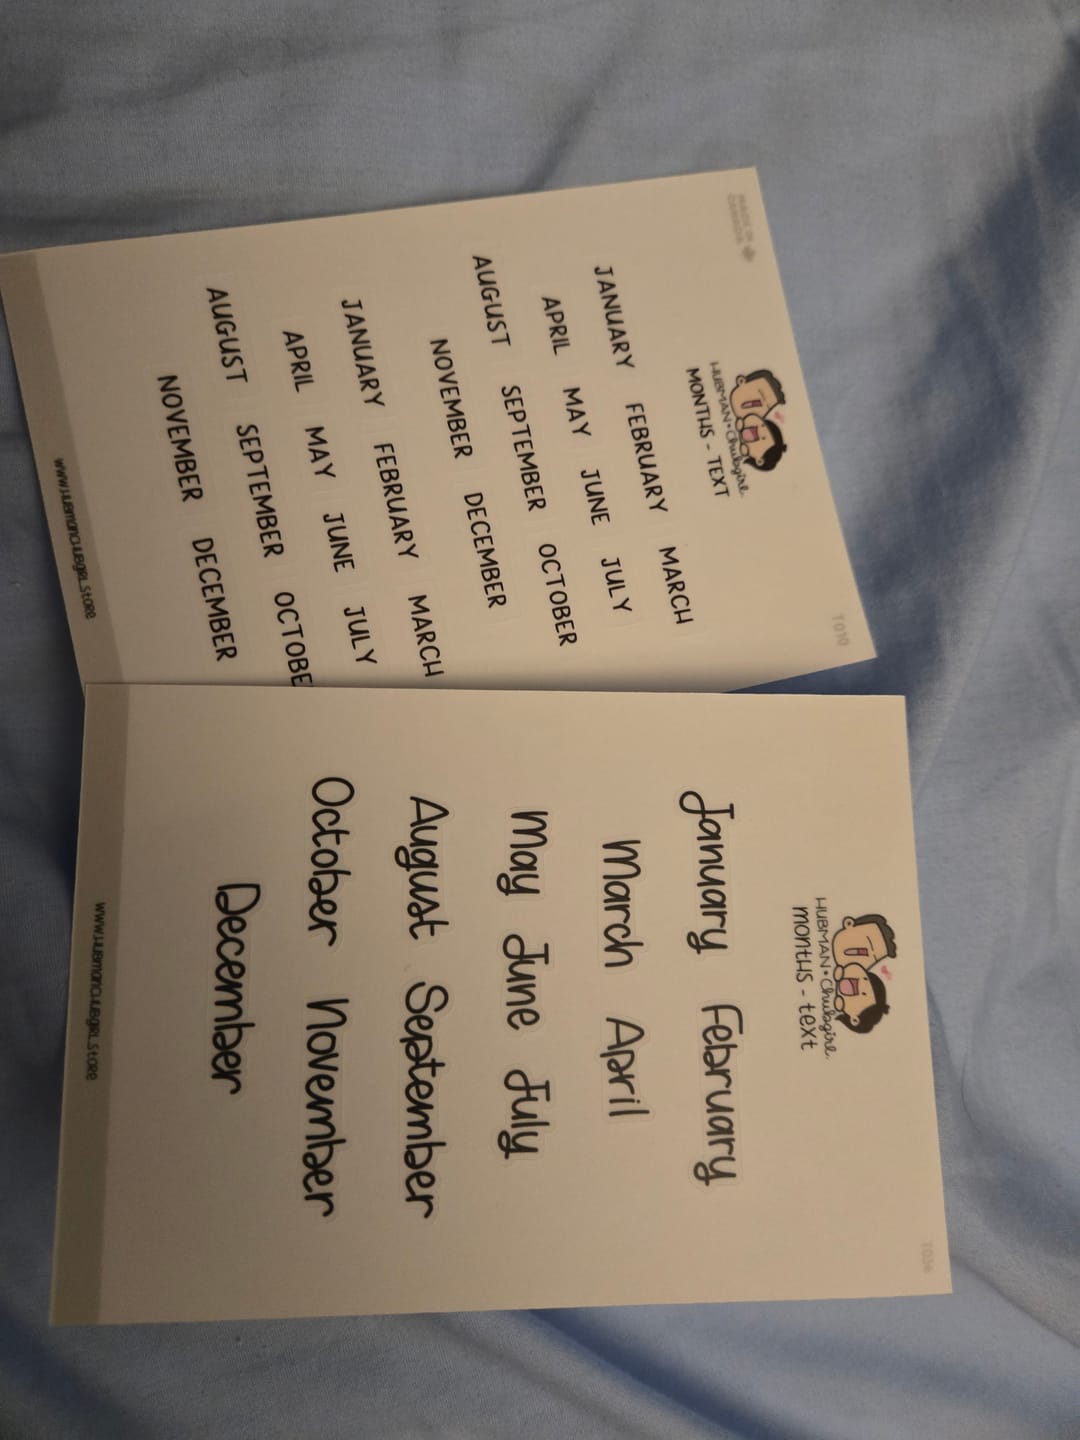 MADE IN
CANADA
T010
HUBMAN + Chubgirl
MONTHS - TEXT
JANUARY FEBRUARY MARCH
APRIL MAY JUNE JULY
AUGUST SEPTEMBER OCTOBER
NOVEMBER DECEMBER
JANUARY FEBRUARY MARCH
APRIL MAY JUNE JULY
AUGUST SEPTEMBER OCTOBE
NOVEMBER DECEMBER
www.HubmanChubgirl.Store
HUBMAN + Chubgirl
months - text
January February
March April
May June July
August September
October November
December
www.HubmanChubgirl.Store